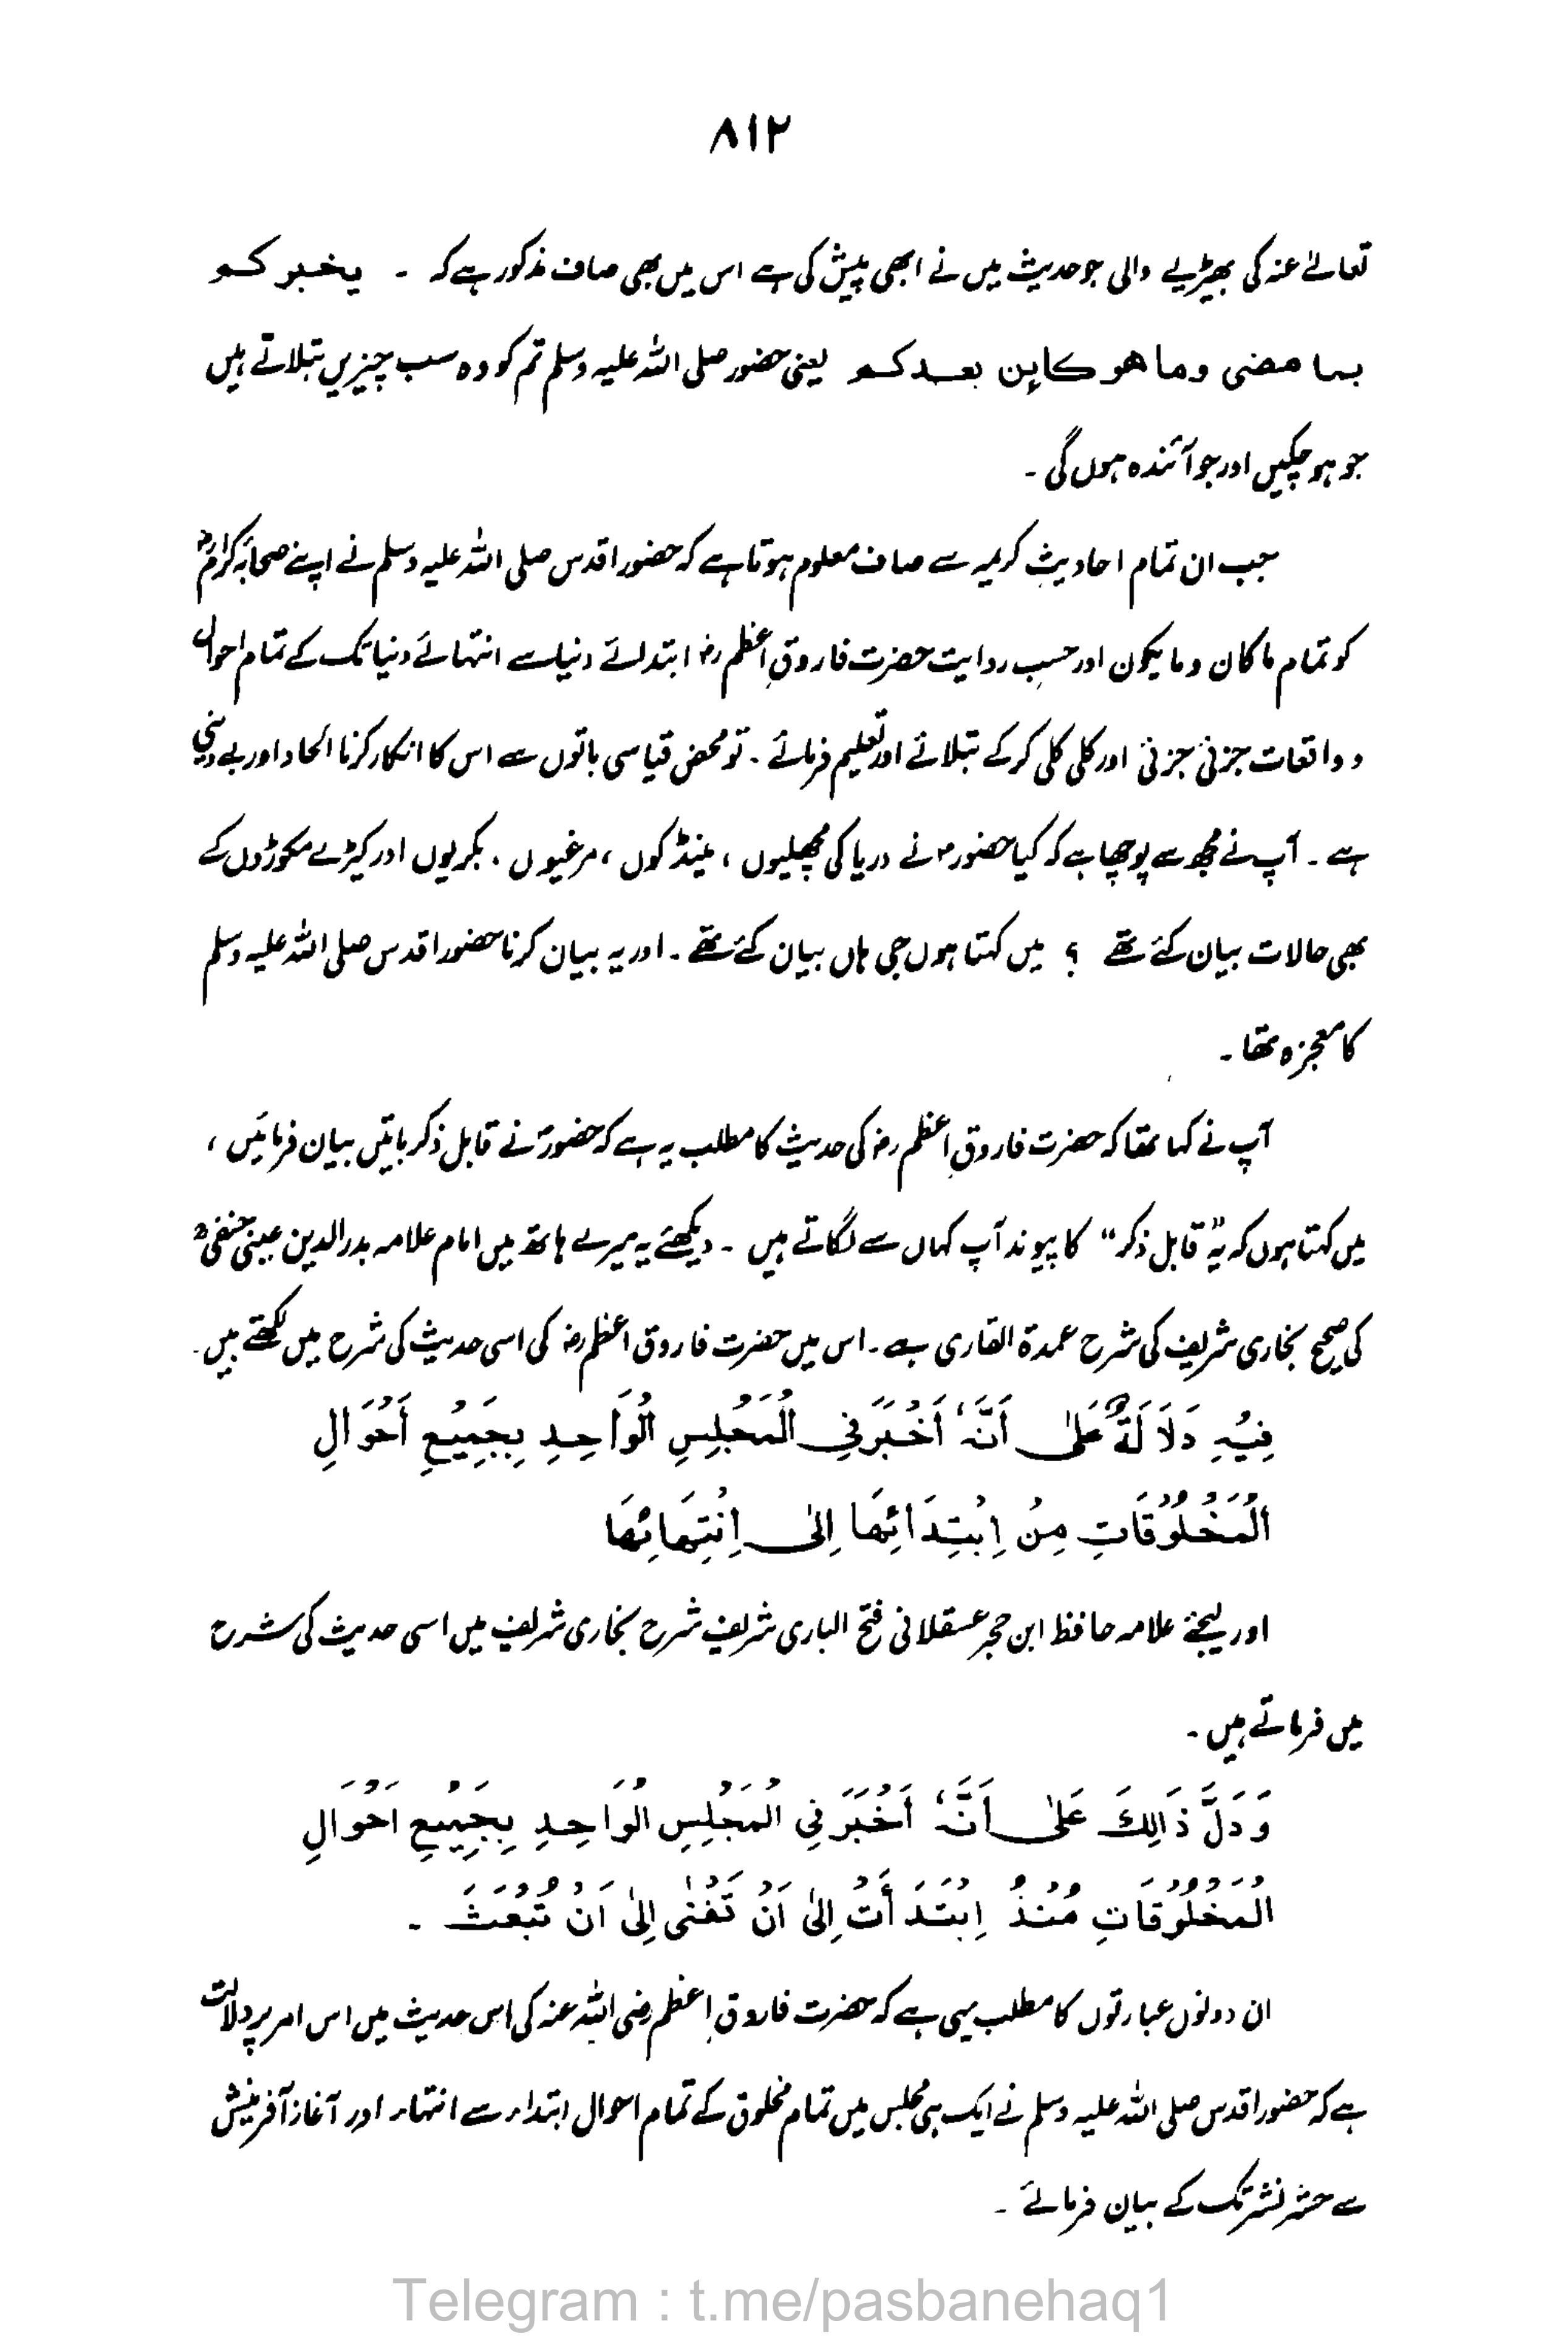 ۸۱۲
تعالےٰ عنہ کی بھیڑیے والی جو حدیث میں نے ابھی پیش کی ہے اس میں بھی صاف مذکور ہے کہ ۔ یخبرکم
بما مضی وما هو کاین بعدکم یعنی حضور صلی اللہ علیہ وسلم تم کو وہ سب چیزیں بتلاتے ہیں
جو ہو چکیں اور جو آئندہ ہوں گی ۔
جب ان تمام احادیثِ کریمہ سے صاف معلوم ہوتا ہے کہ حضور اقدس صلی اللہ علیہ وسلم نے اپنے صحابۂ کرامؓ
کو تمام ماکان ومایکون اور حسبِ روایت حضرت فاروقِ اعظم رضؓ ابتدائے دنیا سے انتہائے دنیا تک کے تمام احوال
و واقعات جزئی جزئی اور کلی کلی کرکے بتلائے اور تعلیم فرمائے ۔ تو محض قیاسی باتوں سے اس کا انکار کرنا الحاد اور بے دینی
ہے ۔ آپ نے مجھ سے پوچھا ہے کہ کیا حضورؐ نے دریا کی مچھلیوں ، مینڈکوں ، مرغیوں ۔ بکریوں اور کیڑے مکوڑوں کے
بھی حالات بیان کئے تھے ؟ میں کہتا ہوں جی ہاں بیان کئے تھے ۔ اور یہ بیان کرنا حضور اقدس صلی اللہ علیہ وسلم
کا معجزہ تھا ۔
آپ نے کہا تھا کہ حضرت فاروقِ اعظم رضؓ کی حدیث کا مطلب یہ ہے کہ حضورؐ نے قابل ذکر باتیں بیان فرمائیں ،
میں کہتا ہوں کہ یہ "قابل ذکر" کا پیوند آپ کہاں سے لگاتے ہیں ۔ دیکھئے یہ میرے ہاتھ میں امام علامہ بدرالدین عینی حنفیؒ
کی صحیح بخاری شریف کی شرح عمدۃ القاری ہے ۔ اس میں حضرت فاروق اعظم رضؓ کی اسی حدیث کی شرح میں لکھتے ہیں ۔
فِيْهِ دَلَالَةٌ عَلٰى أَنَّهٗ أَخْبَرَ فِي الْمَجْلِسِ الْوَاحِدِ بِجَمِيْعِ أَحْوَالِ
الْمَخْلُوْقَاتِ مِنْ اِبْتِدَائِهَا اِلٰى اِنْتِهَائِهَا
اور لیجئے علامہ حافظ ابن حجر عسقلانی فتح الباری شریف شرح بخاری شریف میں اسی حدیث کی شرح
میں فرماتے ہیں ۔
وَدَلَّ ذَالِكَ عَلٰى اَنَّهٗ أَخْبَرَ فِي الْمَجْلِسِ الْوَاحِدِ بِجَمِيْعِ اَحْوَالِ
الْمَخْلُوْقَاتِ مُنْذُ اِبْتَدَأَتْ اِلٰى اَنْ تَفْنٰى اِلٰى اَنْ تُبْعَثَ ۔
ان دونوں عبارتوں کا مطلب یہی ہے کہ حضرت فاروقِ اعظم رضی اللہ عنہ کی اس حدیث میں اس امر پر دلالت
ہے کہ حضور اقدس صلی اللہ علیہ وسلم نے ایک ہی مجلس میں تمام مخلوق کے تمام احوال ابتداء سے انتہاء اور آغاز آفرینش
سے حشر نشر تک کے بیان فرمائے ۔
Telegram : t.me/pasbanehaq1